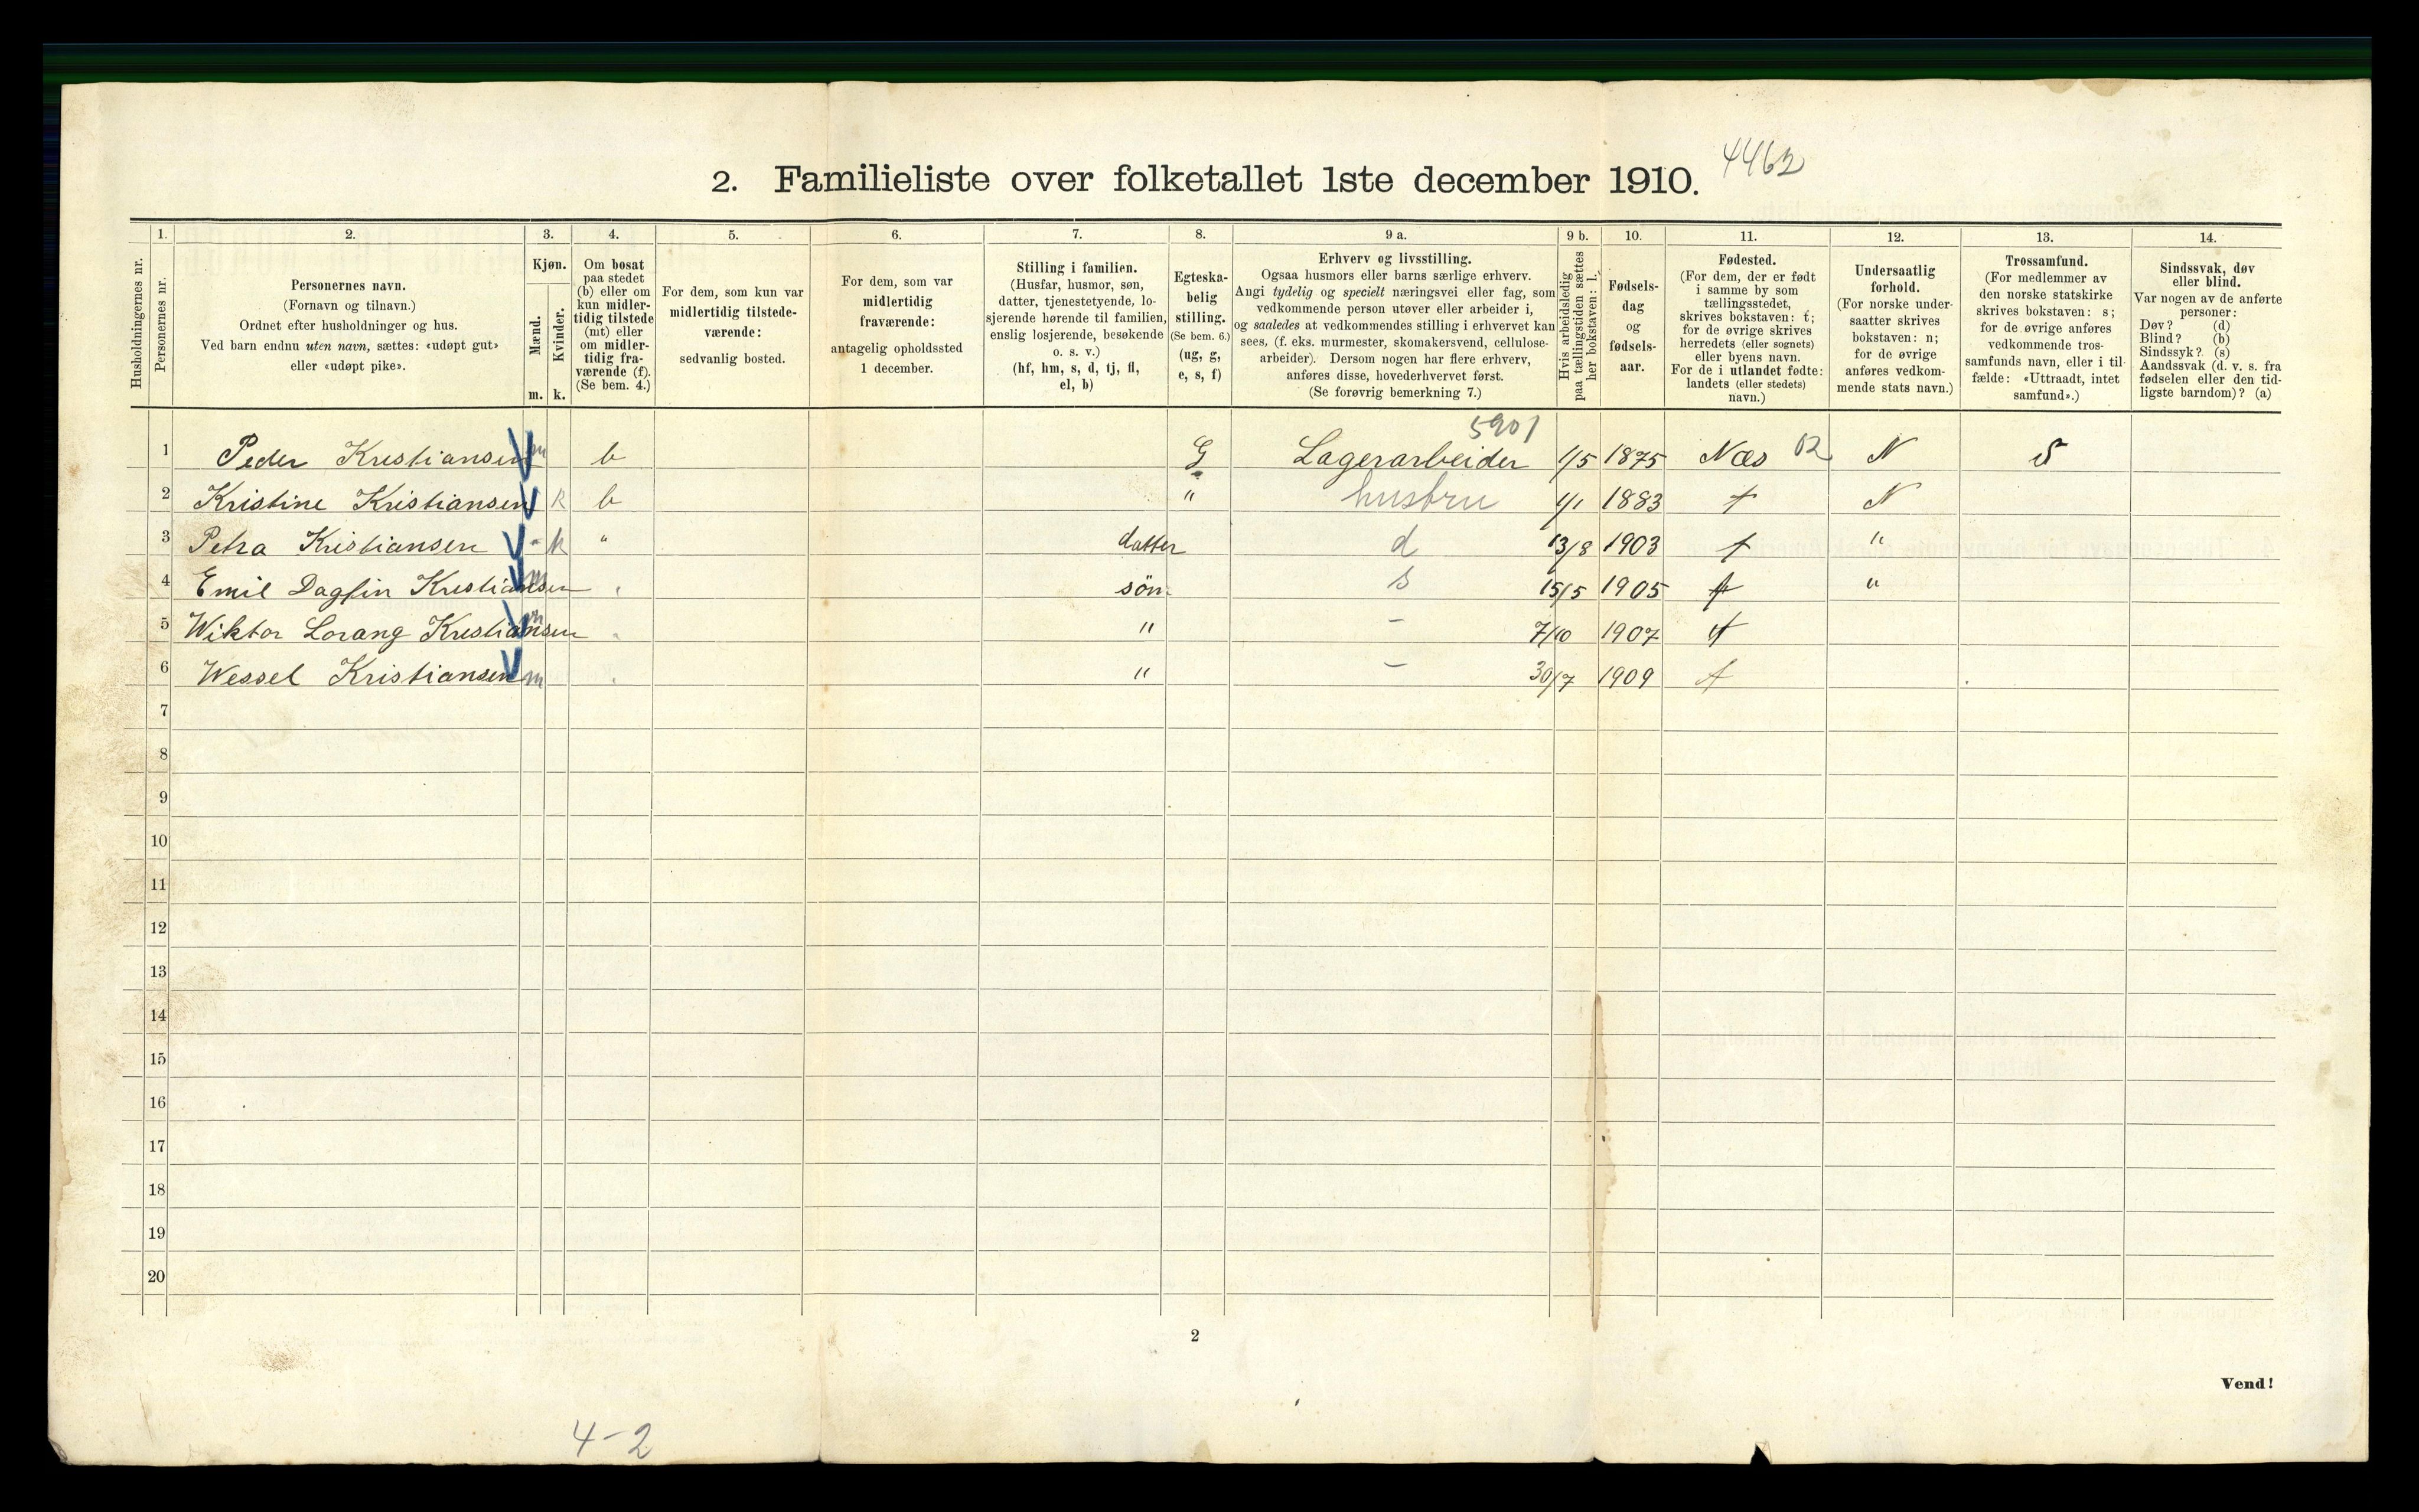 4462
2. Familieliste over folketallet 1ste december 1910.
1. 2. 3. 4. 5. 6. 7. 8. 9 a. 9 b. 10. 11. 12. 13. 14.
Husholdningernes nr.
Personernes nr.
Personernes navn.
(Fornavn og tilnavn.)
Ordnet efter husholdninger og hus.
Ved barn endnu uten navn, sættes: «udøpt gut»
eller «udøpt pike».
Kjøn.
Mænd.
Kvinder.
m. k.
Om bosat
paa stedet
(b) eller om
kun midler-
tidig tilstede
(mt) eller
om midler-
tidig fra-
værende (f).
(Se bem. 4.)
For dem, som kun var
midlertidig tilstede-
værende:
sedvanlig bosted.
For dem, som var
midlertidig
fraværende:
antagelig opholdssted
1 december.
Stilling i familien.
(Husfar, husmor, søn,
datter, tjenestetyende, lo-
sjerende hørende til familien,
enslig losjerende, besøkende
o. s. v.)
(hf, hm, s, d, tj, fl,
el, b)
Egteska-
belig
stilling.
(Se bem. 6.)
(ug, g,
e, s, f)
Erhverv og livsstilling.
Ogsaa husmors eller barns særlige erhverv.
Angi tydelig og specielt næringsvei eller fag, som
vedkommende person utøver eller arbeider i,
og saaledes at vedkommendes stilling i erhvervet kan
sees, (f. eks. murmester, skomakersvend, cellulose-
arbeider). Dersom nogen har flere erhverv,
anføres disse, hovederhvervet først.
(Se forøvrig bemerkning 7.)
Hvis arbeidsledig
paa tællingstiden sættes
her bokstaven: l.
Fødsels-
dag
og
fødsels-
aar.
Fødested.
(For dem, der er født
i samme by som
tællingsstedet,
skrives bokstaven: t;
for de øvrige skrives
herredets (eller sognets)
eller byens navn.
For de i utlandet fødte:
landets (eller stedets)
navn.)
Undersaatlig
forhold.
(For norske under-
saatter skrives
bokstaven: n;
for de øvrige
anføres vedkom-
mende stats navn.)
Trossamfund.
(For medlemmer av
den norske statskirke
skrives bokstaven: s;
for de øvrige anføres
vedkommende tros-
samfunds navn, eller i til-
fælde: «Uttraadt, intet
samfund».)
Sindssvak, døv
eller blind.
Var nogen av de anførte
personer:
Døv? (d)
Blind? (b)
Sindssyk? (s)
Aandssvak (d. v. s. fra
fødselen eller den tid-
ligste barndom)? (a)
5901
1 Peder Kristiansen m b G Lagerarbeider 1/5 1875 Næs 02 N S
2 Kristine Kristiansen k b " husbru 1/1 1883 t N
3 Petra Kristiansen - k " datter d 13/8 1903 t "
4 Emil Dagfin Kristiansen m søn s 15/5 1905 t "
5 Wiktor Lorang Kristiansen m " - 7/10 1907 t
6 Wessel Kristiansen m " - 30/7 1909 t
7
8
9
10
11
12
13
14
15
16
17
18
19
20
2
Vend!
4-2